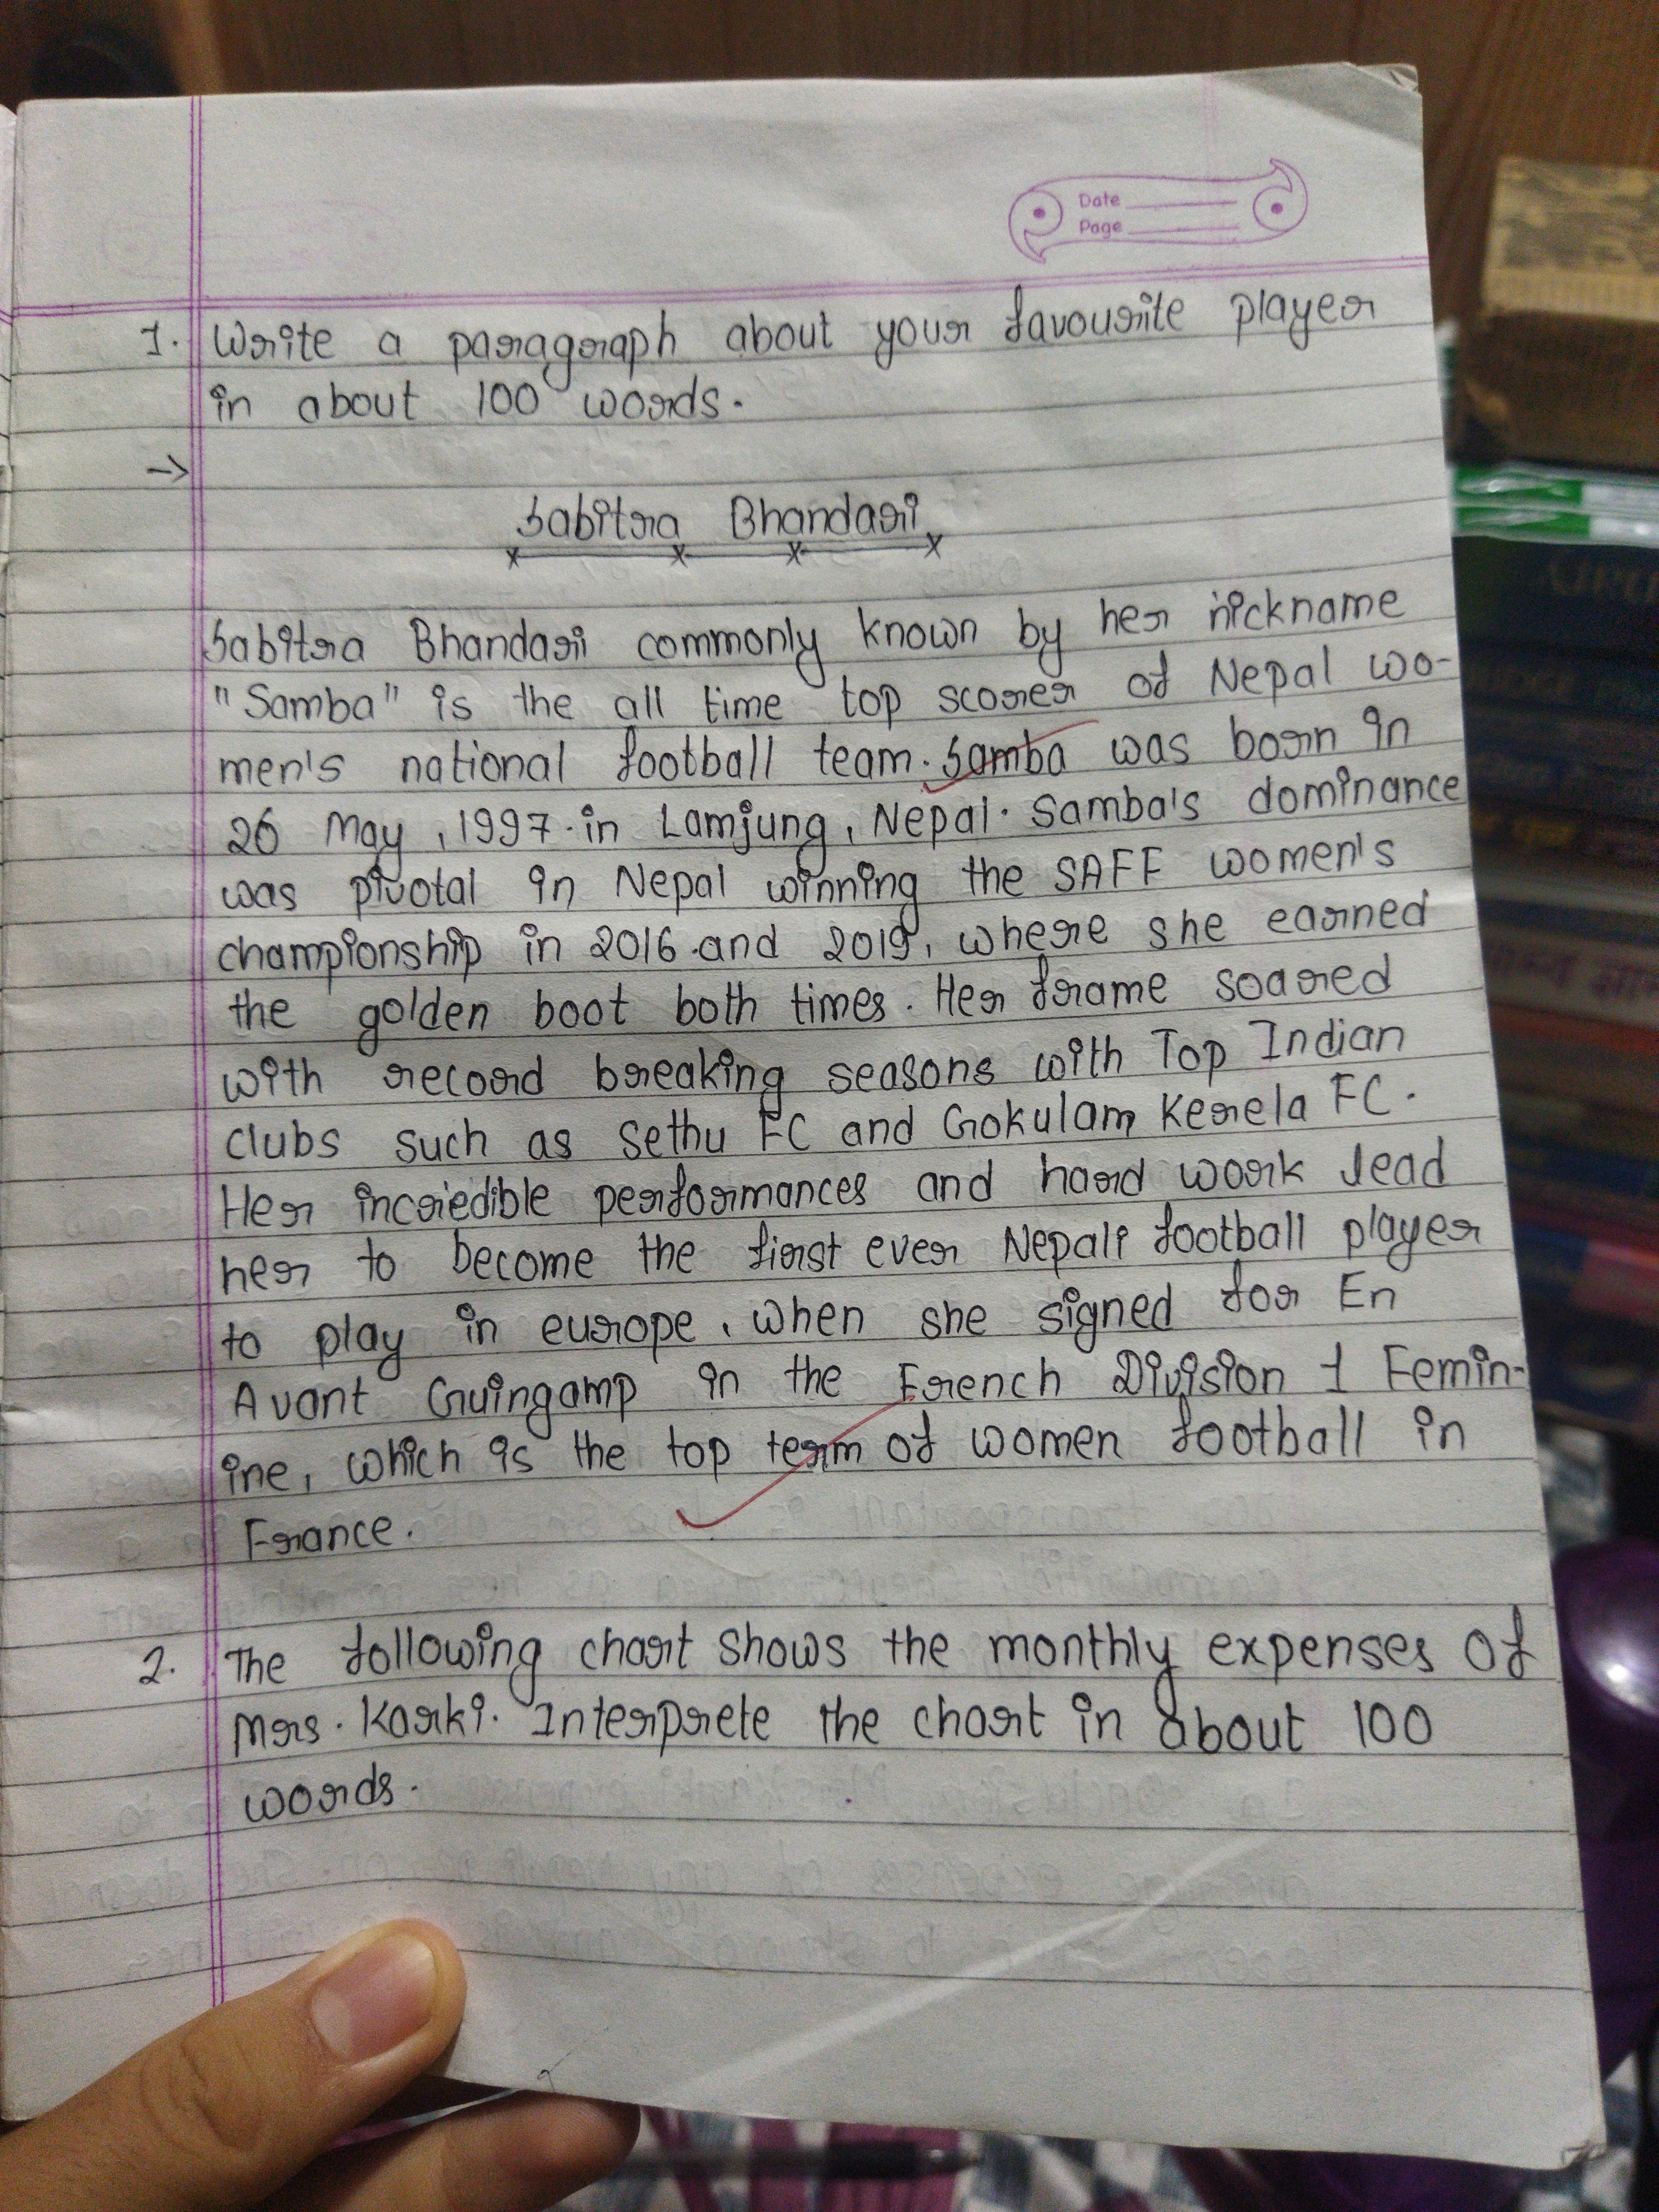 Date
Page
1. Write a paragraph about your favourite player
in about 100 words.
→
Sabitra Bhandari
Sabitra Bhandari commonly known by her nickname
"Samba" is the all time top scorer of Nepal wo-
men's national football team. Samba was born in
26 May, 1997 in Lamjung, Nepal. Samba's dominance
was pivotal in Nepal winning the SAFF women's
championship in 2016 and 2019, where she earned
the golden boot both times. Her frame soared
with record breaking seasons with Top Indian
clubs such as Sethu FC and Gokulam Kerela FC.
Her incriedible performances and hard work lead
her to become the first ever Nepali football player
to play in europe, when she signed for En
Avant Guingamp in the French Division 1 Femin-
ine, which is the top term of women football in
France.
2. The following chart shows the monthly expenses of
Mrs. Karki. Interprete the chart in about 100
words.